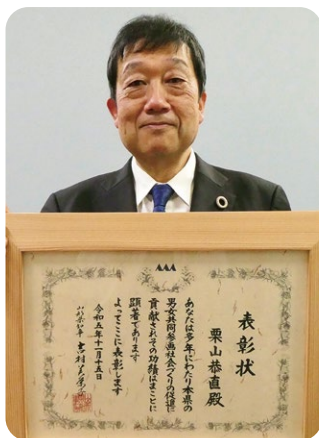 表彰状
栗山恭直殿
あなたは多年にわたり本県の
男女共同参画社会づくりの促進に
貢献されその功績はまことに
顕著であります
よってここに表彰します
令和五年十一月十五日
山形県知事 吉村美栄子